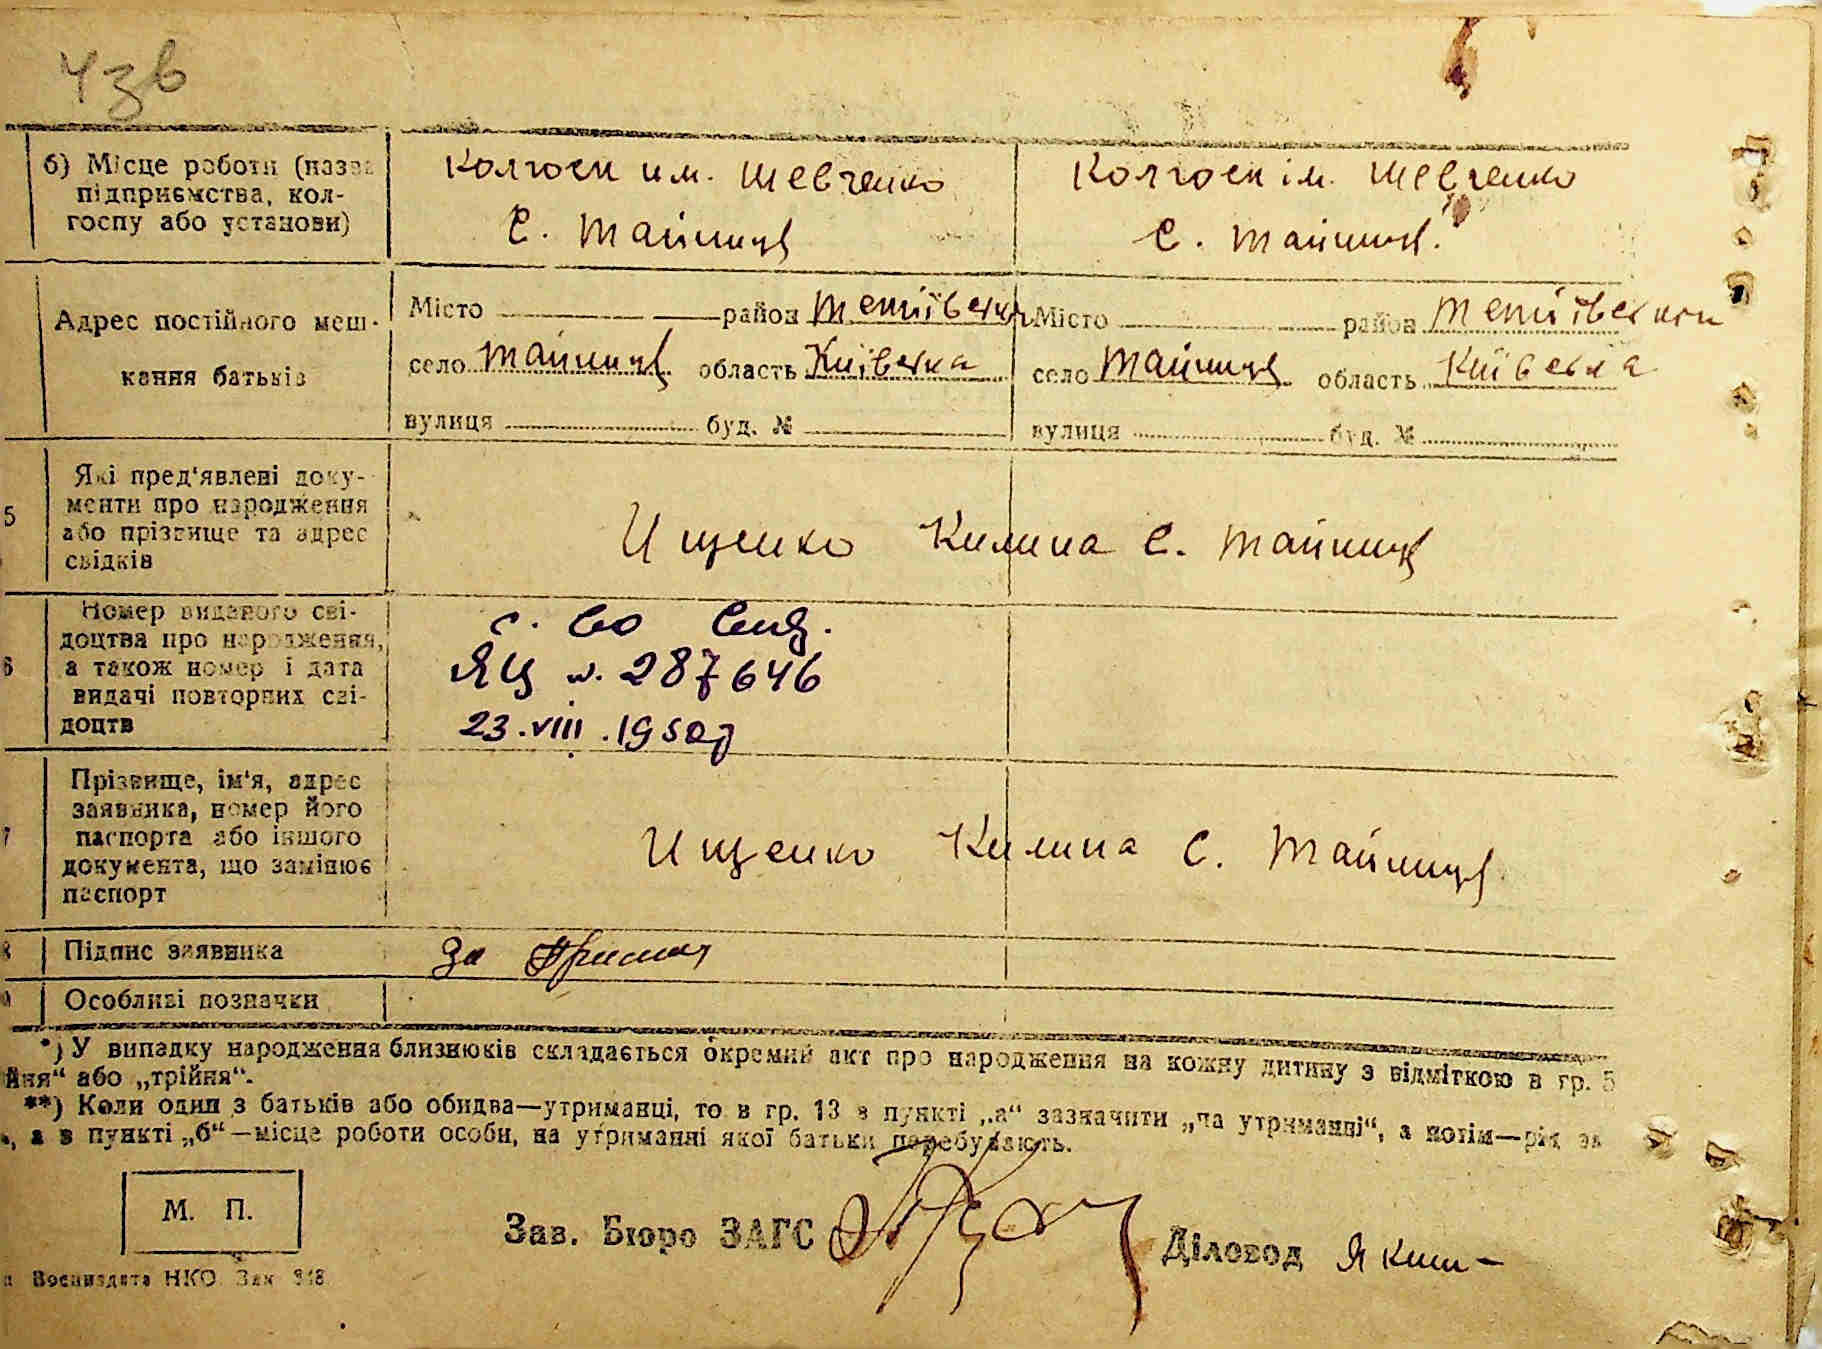 43в
б) Місце роботи (назва
підприємства, кол-
госпу або установи)
Колгосп им. Шевченко
с. Тайниця
Колгосп ім. Шевченко
с. Тайниця
Адрес постійного меш-
кання батьків
Місто район Тетіївськ
село Тайниця область Київська
вулиця буд. №
Місто район Тетіївськи
село Тайниця область Київська
вулиця буд. №
5
Які пред'явлені доку-
менти про народження
або прізвище та адрес
свідків
Ищенко Килина с. Тайниця
6
Номер виданого сві-
доцтва про народження,
а також номер і дата
видачі повторних сві-
доцтв
с. во
ЯЦ N. 287646
23.VIII.1950г
7
Прізвище, ім'я, адрес
заявника, номер його
паспорта або іншого
документа, що замінює
паспорт
Ищенко Килина с. Тайниця
8
Підпис заявника
За
Особливі позначки
*) У випадку народження близнюків складається окремий акт про народження на кожну дитину з відміткою в гр. 5
йня“ або „трійня“.
**) Коли один з батьків або обидва—утриманці, то в гр. 13 в пункті „а“ зазначити „на утриманні“, а потім—рід за
, а в пункті „б“—місце роботи особи, на утриманні якої батьки перебувають.
М. П.
Зав. Бюро ЗАГС
Діловод
Воениздата НКО Зак 348